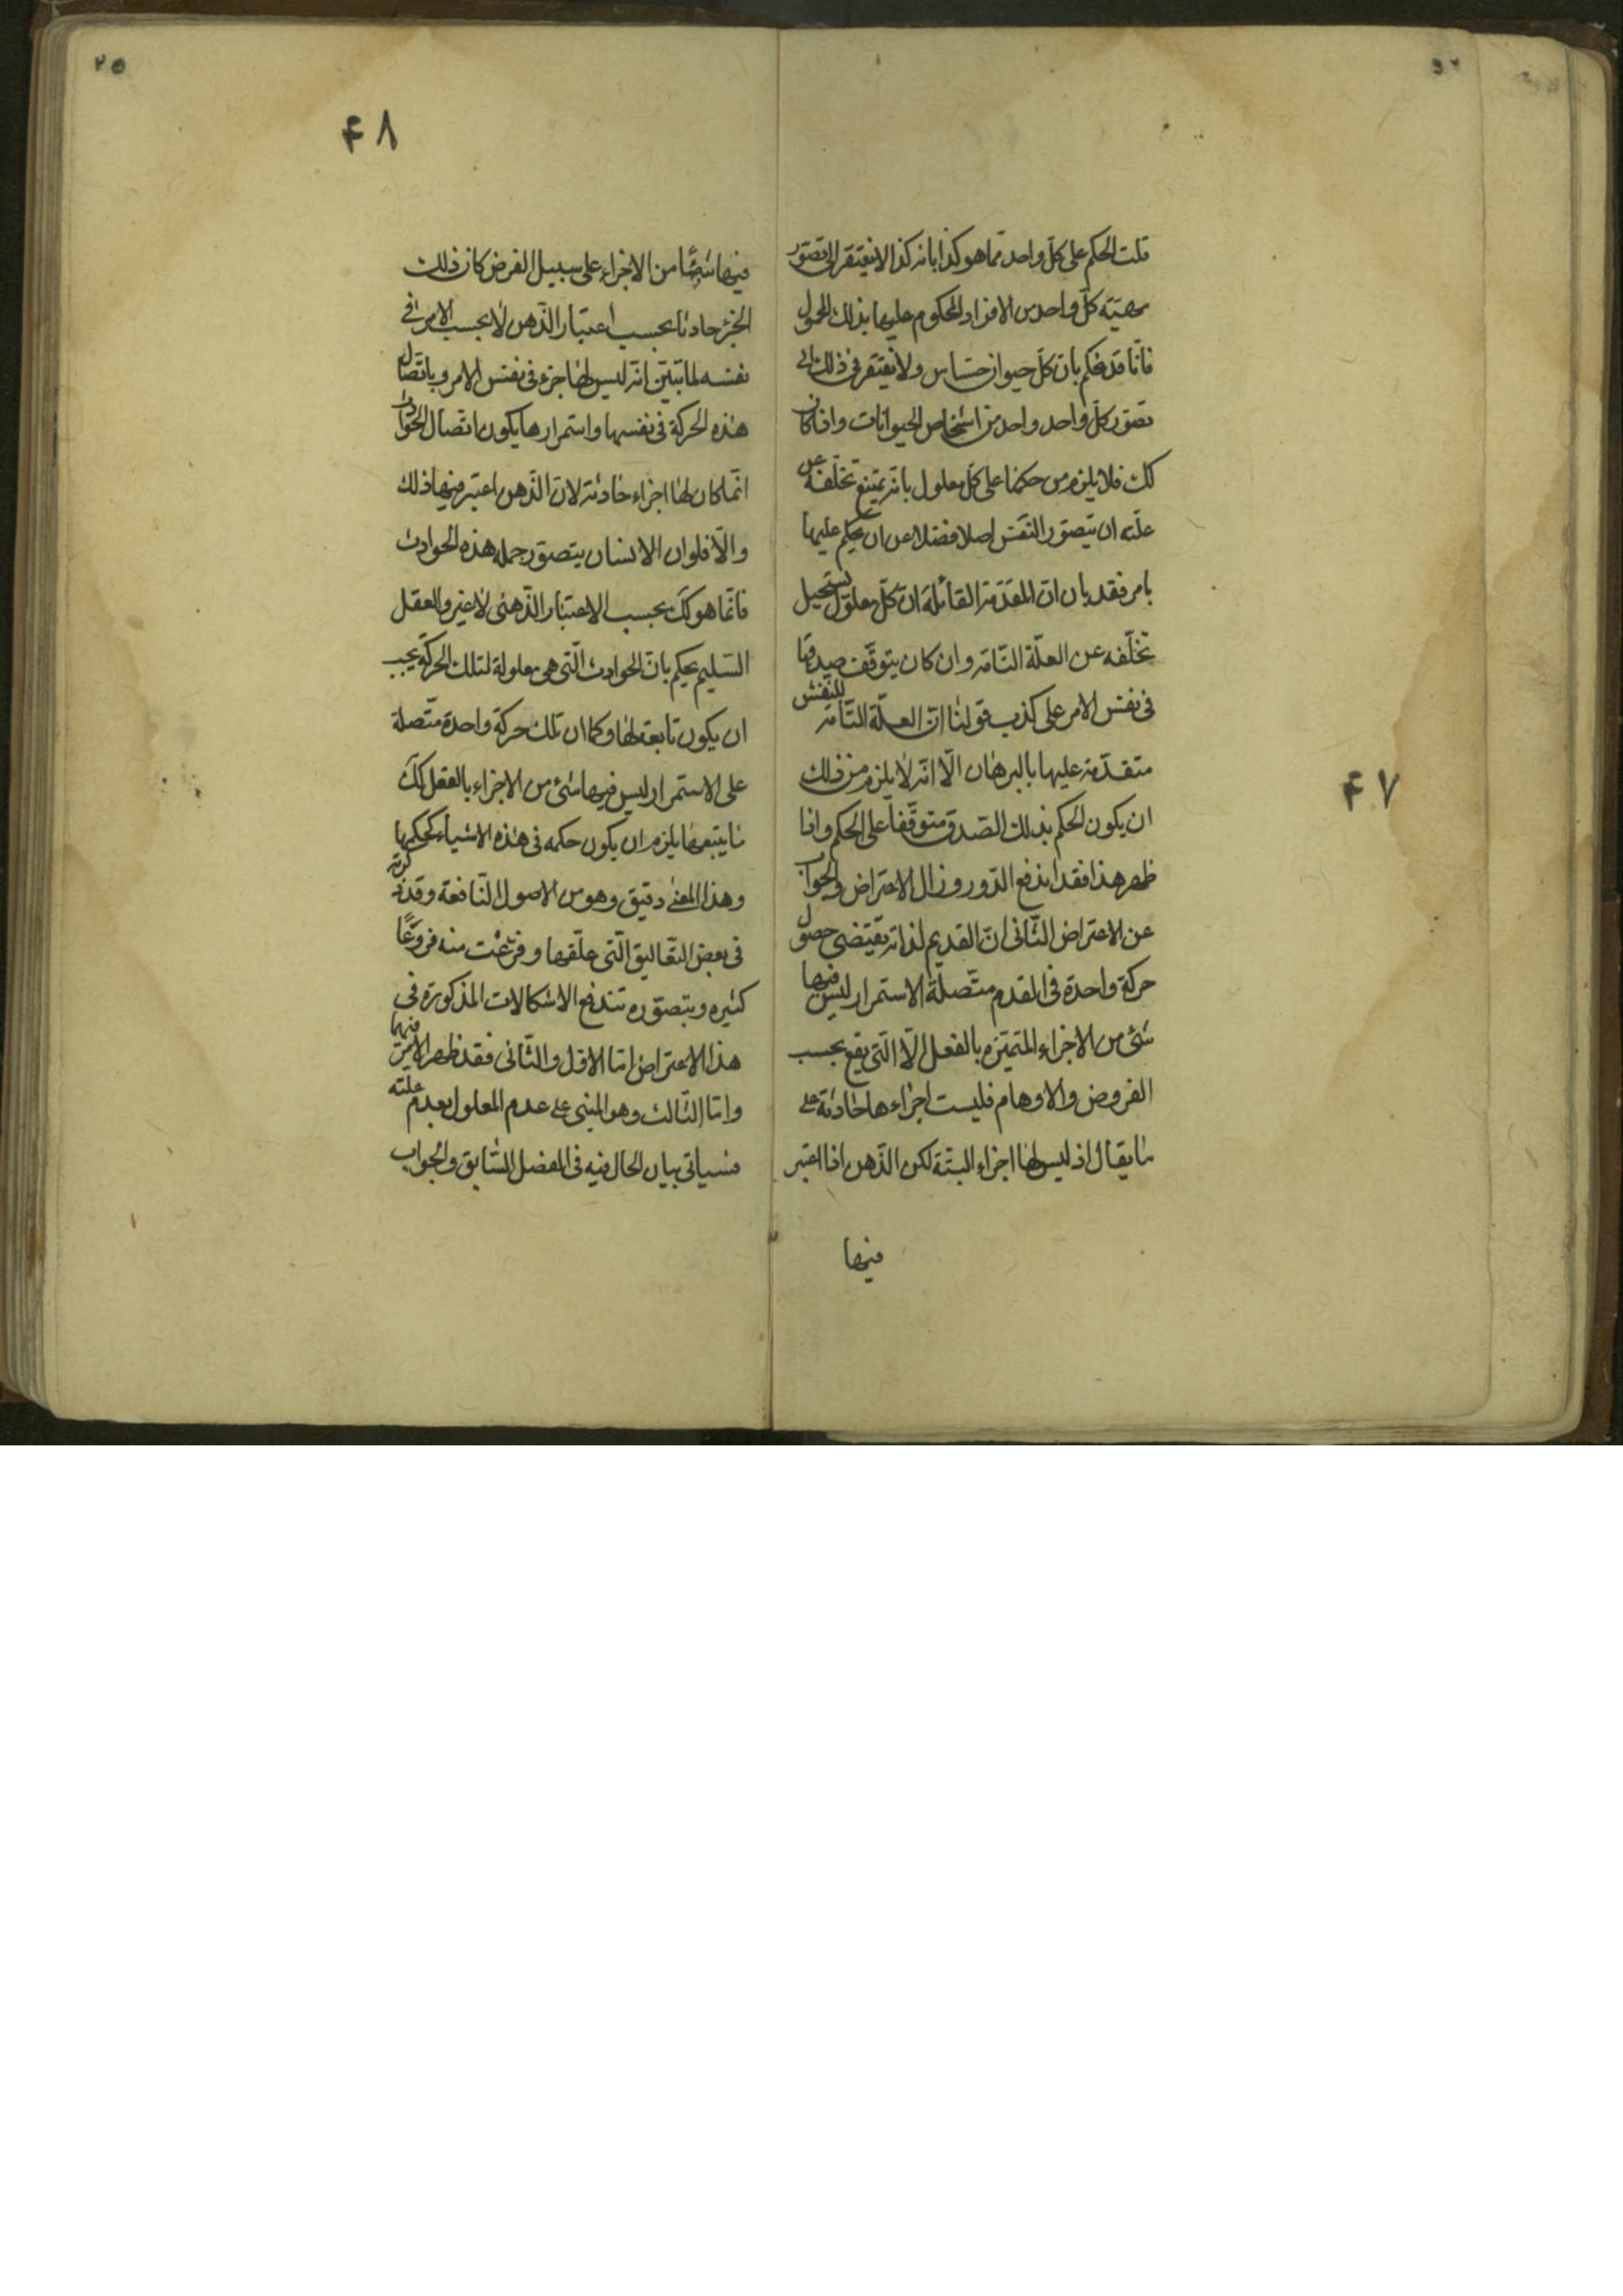 قلت الحكم على كل واحد مما هو كذا بانه كذا لا يفتقر الى تصور
مهيته كل واحد من الافراد المحكوم عليها بذلك المحمول
فانا قد نحكم بان كل حيوان حساس ولا نفتقر فى ذلك الى
تصور كل واحد واحد من اشخاص الحيوانات واذا كان
كك فلا يلزم من حكمنا على كل معلول بانه يمتنع تخلفه عن
علته ان يتصور النفس اصلا فضلا عن ان يحكم عليها
بامر فقد بان ان المقدمة القائلة ان كل معلول يستحيل
تخلفه عن العلة التامة وان كان يتوقف صدقها
فى نفس الامر على كذب قولنا ان العلة التامة للنفس
متقدمة عليها بالبرهان الا انه لا يلزم من ذلك
ان يكون الحكم بذلك الصدق متوقفا على الحكم واذا
ظهر هذا فقد اندفع الدور وزال الاعتراض والجواب
عن الاعتراض الثانى ان القديم لذاته يقتضى حصول
حركة واحدة فى المقدم متصلة الاستمرار ليس فيها
شئ من الاجزاء المتميزه بالفعل الا التى يقع بحسب
الفروض والاوهام فليست اجزاءها حادثة على
ما يقال اذ ليس لها اجزاء البتة لكن الذهن اذا اعتبر
فيها
۴۷
۴۸
۲۵
فيها شيئا من الاجزاء على سبيل الفرض كان ذلك
الجزء حادثا بحسب اعتبار الذهن لا بحسب الامر فى
نفسه لما تبين انه ليس لها جزء فى نفس الامر وباتصال
هذه الحركة فى نفسها واستمرارها يكون اتصال الحوادث
انما كان لها اجزاء حادثة لان الذهن اعتبر فيها ذلك
والا فلو ان الانسان يتصور جملة هذه الحوادث
فانما هو كك بحسب الاعتبار الذهنى لا غير والعقل
السليم يحكم بان الحوادث التى هى معلولة لتلك الحركة يجب
ان يكون تابعة لها وكما ان تلك حركة واحدة متصلة
على الاستمرار ليس فيها شئ من الاجزاء بالفعل كك
ما يتبعها يلزم ان يكون حكمه فى هذه الاشياء كحكمها
وهذا المعنى دقيق وهو من الاصول النافعة وقد ذكرته
فى بعض التعاليق التى علقها وفرعت منه فروعا
كثيره وبتصوره تندفع الاشكالات المذكورة فى
هذا الاعتراض اما الاول والثانى فقد ظهر الامر فيهما
واما الثالث وهو المبنى على عدم المعلول بعدم علته
فسياتى بيان الحال فيه فى الفصل السابق والجواب